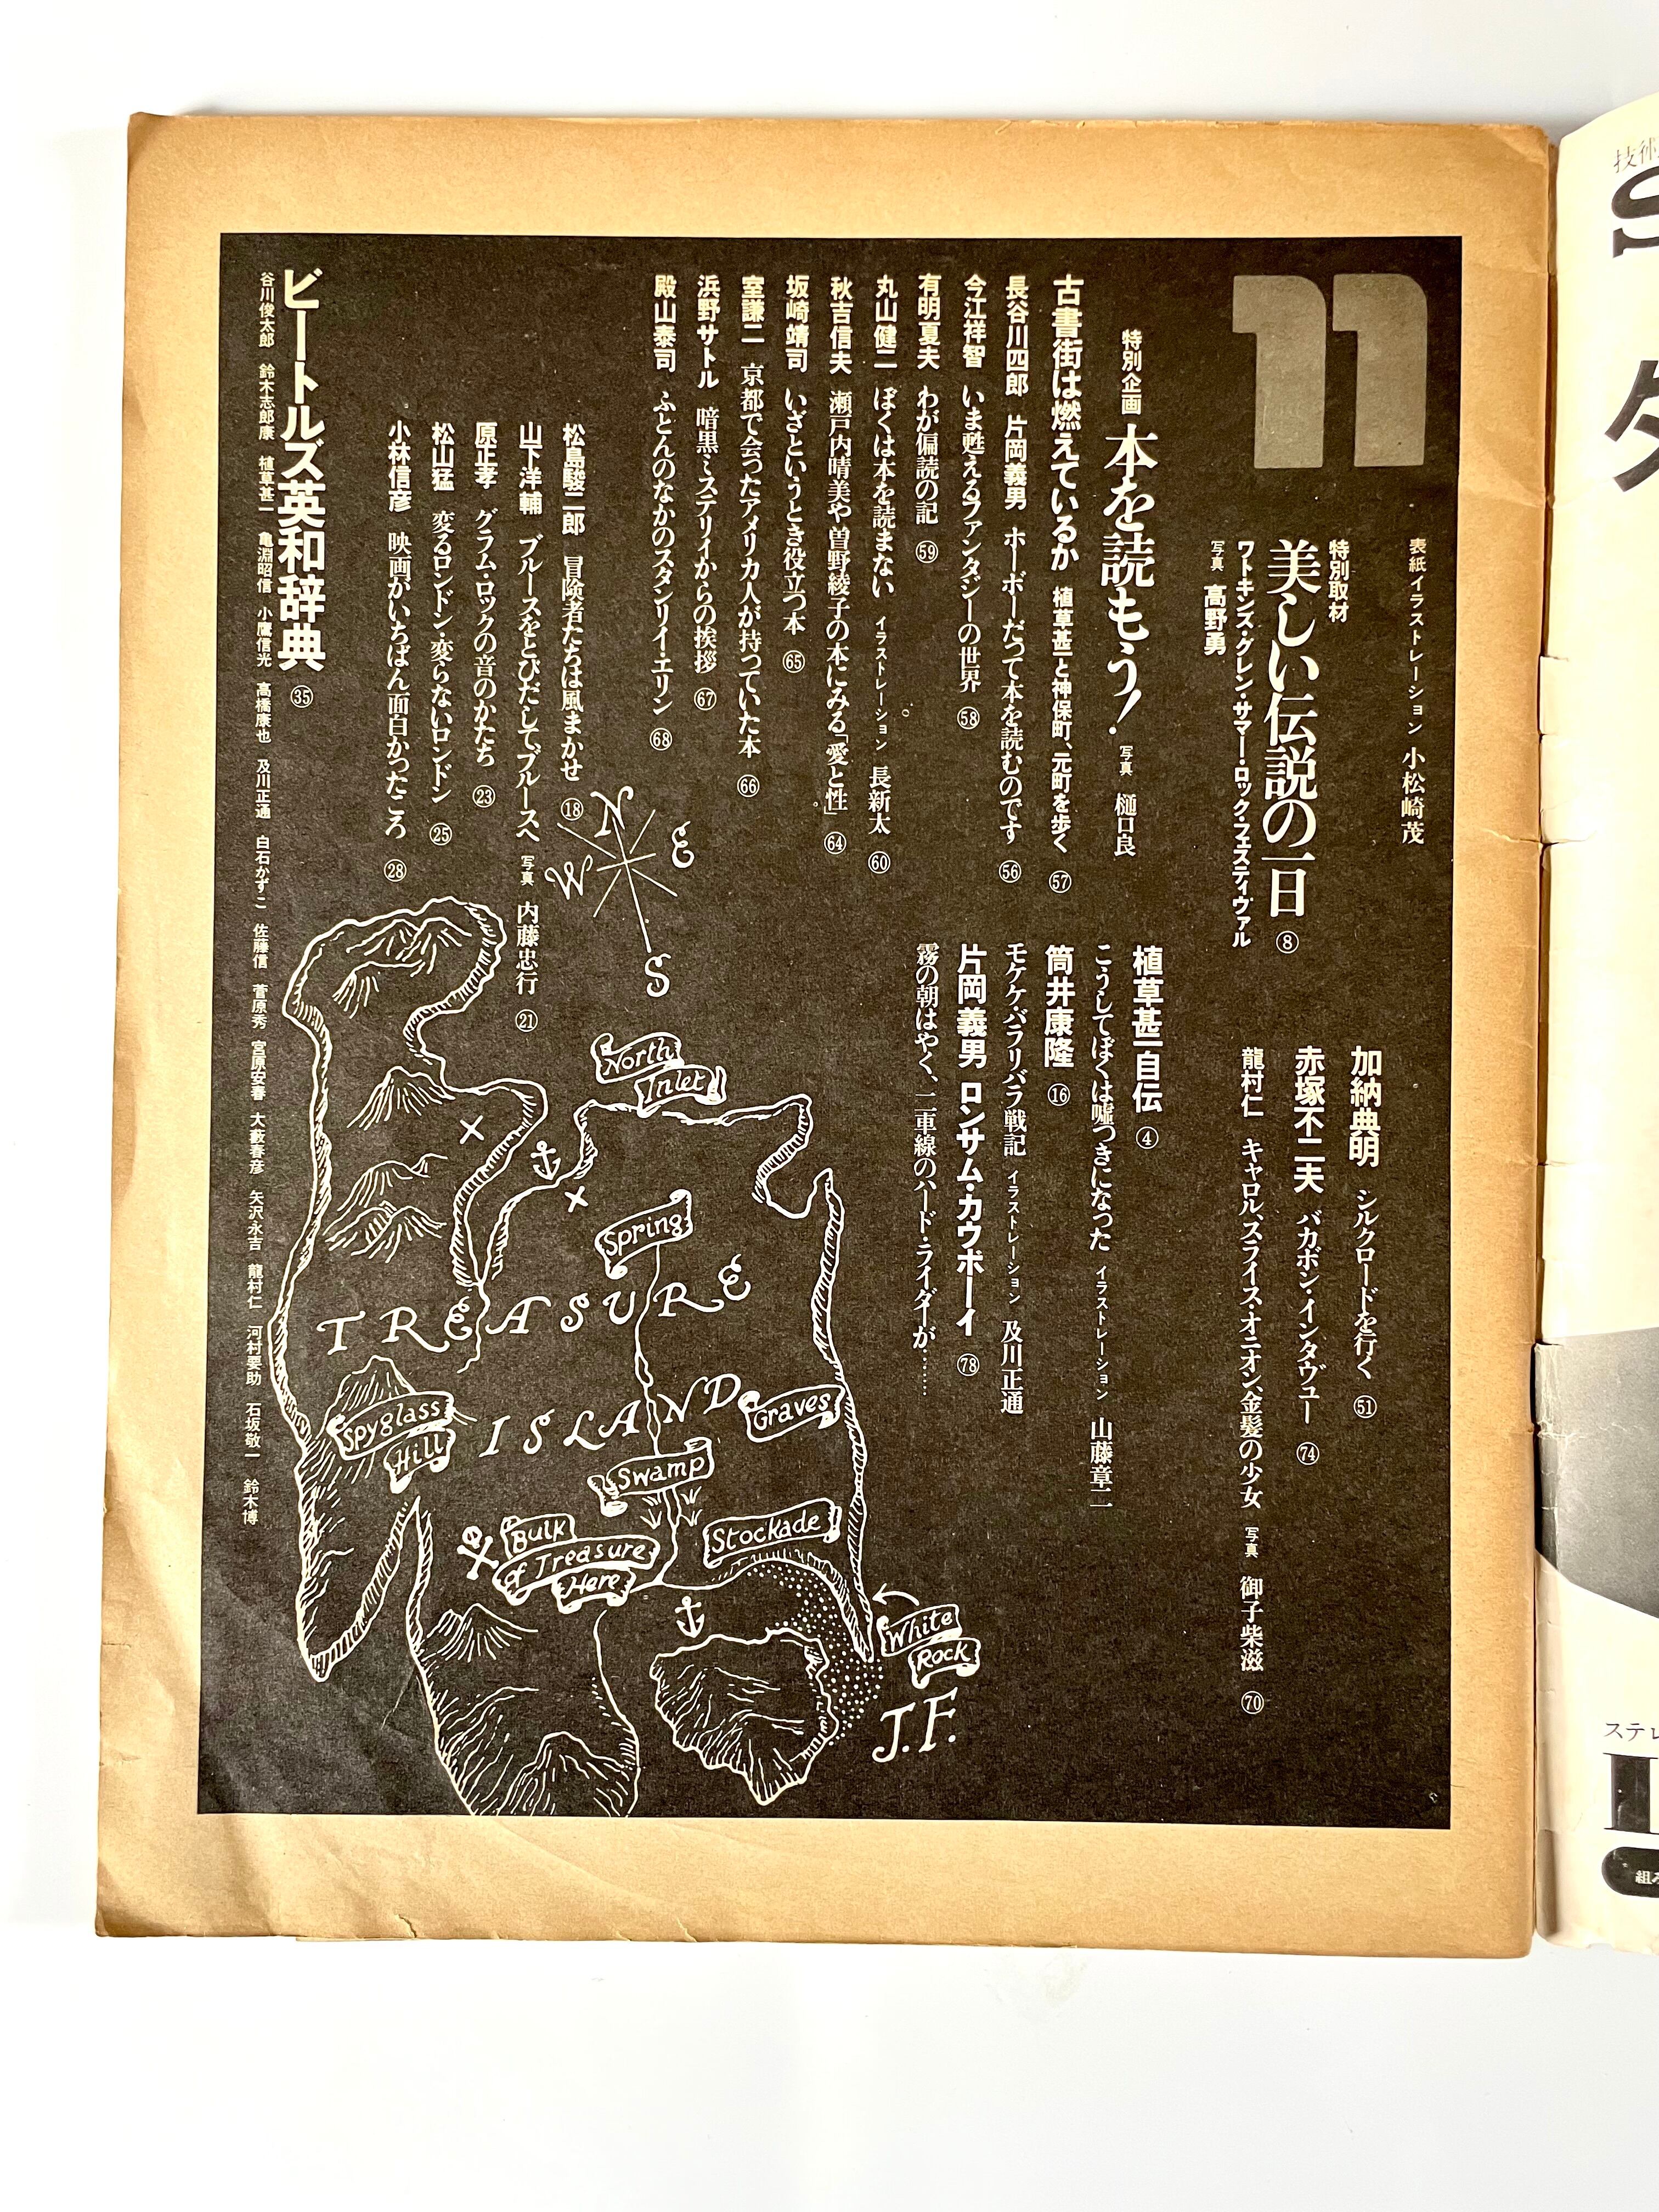 11
表紙イラストレーション 小松崎茂
特別取材
美しい伝説の一日 ⑧
ワトキンズ・グレン・サマー・ロック・フェスティヴァル
写真 高野勇
加納典明 シルクロードを行く 51
赤塚不二夫 バカボン・インタヴュー 74
龍村仁 キャロル、スライス・オニオン、金髪の少女 写真 御子柴滋 70
特別企画 本を読もう! 写真 樋口良
古書街は燃えているか 植草甚一と神保町、元町を歩く 57
長谷川四郎 片岡義男 ホーボーだって本を読むのです 56
今江祥智 いま甦えるファンタジーの世界 58
有明夏夫 わが偏読の記 59
丸山健二 ぼくは本を読まない イラストレーション 長新太 60
秋吉信夫 瀬戸内晴美や曽野綾子の本にみる「愛と性」 64
坂崎靖司 いざというとき役立つ本 65
室謙二 京都で会ったアメリカ人が持っていた本 66
浜野サトル 暗黒ミステリイからの挨拶 67
殿山泰司 ふとんのなかのスタンリイ・エリン 68
植草甚一自伝 ④
こうしてぼくは嘘つきになった イラストレーション 山藤章二
筒井康隆 ⑯
モケケ=バラリバラ戦記 イラストレーション 及川正通
片岡義男 ロンサム・カウボーイ 78
霧の朝はやく、二車線のハード・ライダーが……
松島駿二郎 冒険者たちは風まかせ ⑱
山下洋輔 ブルースをとびだしてブルースへ 写真 内藤忠行 ㉑
原正孝 グラム・ロックの音のかたち ㉓
松山猛 変るロンドン・変らないロンドン ㉕
小林信彦 映画がいちばん面白かったころ ㉘
ビートルズ英和辞典 ㉟
谷川俊太郎 鈴木志郎康 植草甚一 亀渕昭信 小鷹信光 高橋康也 及川正通 白石かずこ 佐藤信 菅原秀 宮原安春 大藪春彦 矢沢永吉 龍村仁 河村要助 石坂敬一 鈴木博
N
E
W
S
North
Inlet
Spring
TREASURE
ISLAND
Graves
Spyglass
Hill
Swamp
Bulk
of Treasure
Here
Stockade
White
Rock
J.F.
技術
S
タ
ステレ